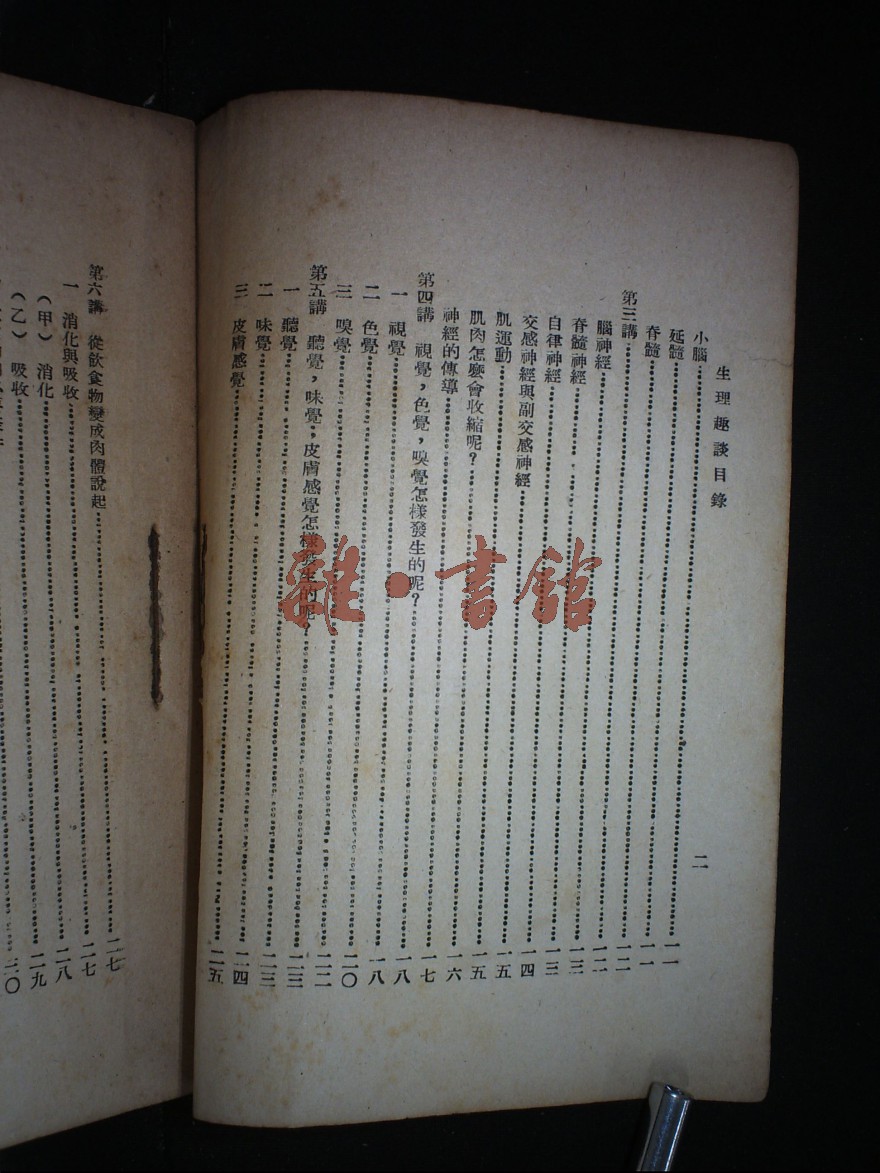 生理趣談目錄 二
小腦 一一
延髓 一一
脊髓 一二
第三講 一二
腦神經 一三
脊髓神經 一三
自律神經 一四
交感神經與副交感神經 一五
肌運動 一五
肌肉怎麼會收縮呢？ 一六
神經的傳導 一七
第四講 視覺，色覺，嗅覺怎樣發生的呢？ 一八
一 視覺 一八
二 色覺 二〇
三 嗅覺 二二
第五講 聽覺，味覺，皮膚感覺怎樣發生的呢？ 二三
一 聽覺 二三
二 味覺 二四
三 皮膚感覺 二五
第六講 從飲食物變成肉體說起 二七
一 消化與吸收 二七
（甲）消化 二八
（乙）吸收 二九
三〇
雜·書館